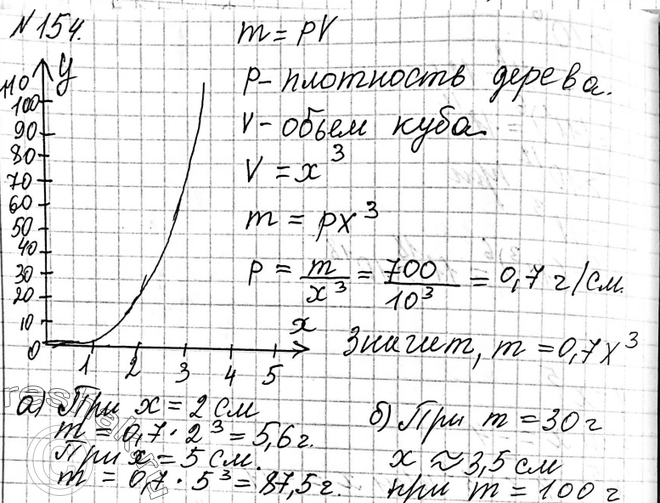 №154.
m = ρV
ρ - плотность дерева.
V - обьем куба
V = x³
m = ρx³
ρ = m/x³ = 700/10³ = 0,7 г/см.
Значит, m = 0,7x³
y
110
100
90
80
70
60
50
40
30
20
10
0
1 2 3 4 5
x
а) При x = 2 см
m = 0,7 · 2³ = 5,6 г.
При x = 5 см.
m = 0,7 · 5³ = 87,5 г.
б) При m = 30 г
x ≈ 3,5 см
при m = 100 г